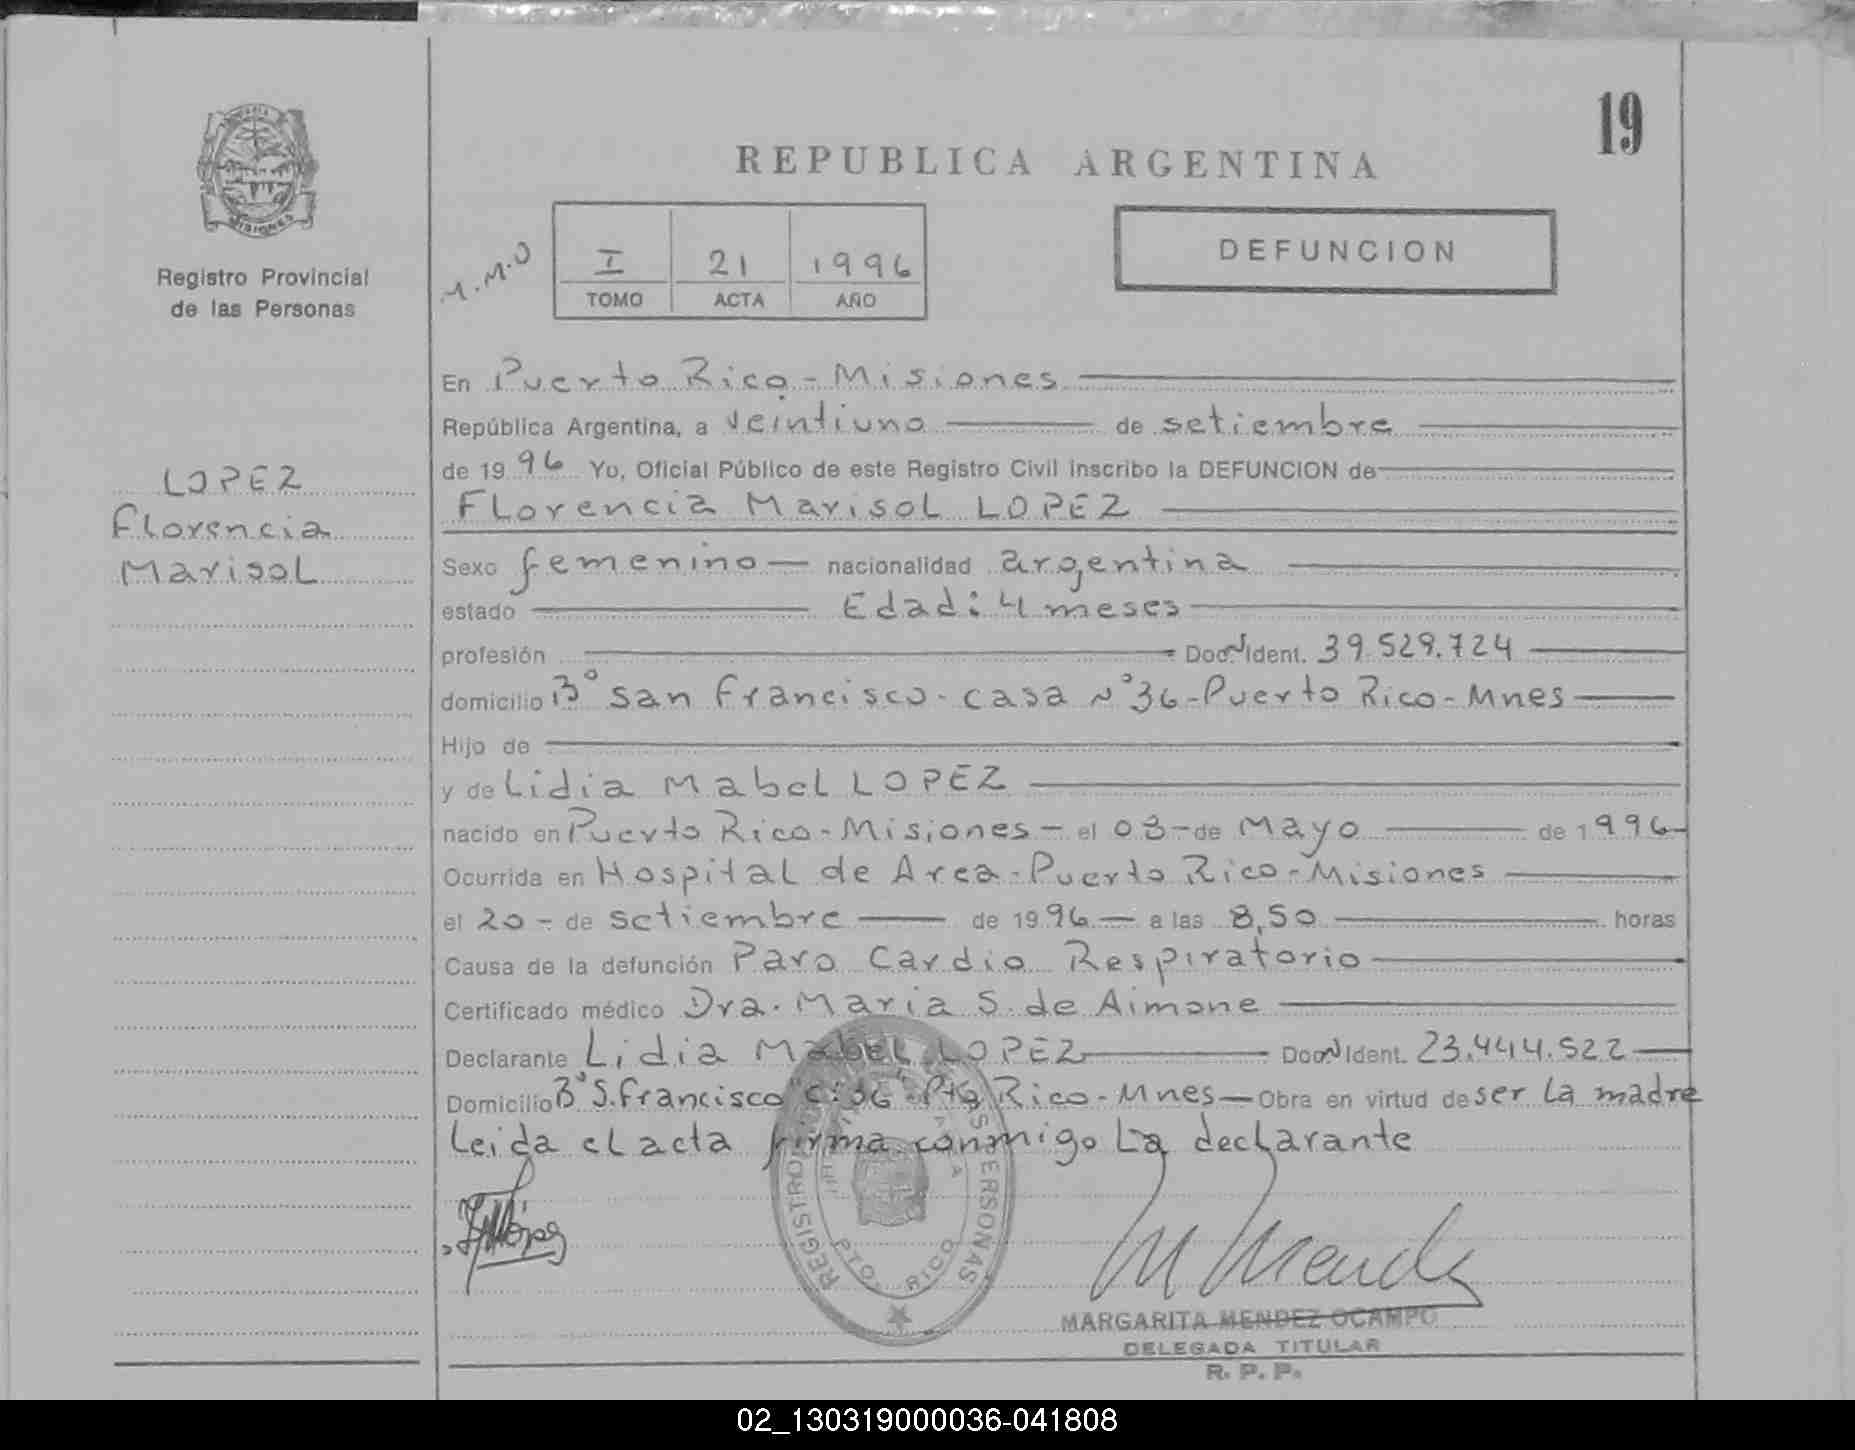 19
REPUBLICA ARGENTINA
MISIONES
Registro Provincial
de las Personas
M.M.O
I 21 1996
TOMO ACTA AÑO
DEFUNCION
LOPEZ
Florencia
Marisol
En Puerto Rico - Misiones
República Argentina, a veintiuno de setiembre
de 1996 Yo, Oficial Público de este Registro Civil inscribo la DEFUNCION de
Florencia Marisol LOPEZ
Sexo femenino nacionalidad argentina
estado Edad: 4 meses
profesión Doc. N Ident. 39.529.724
domicilio B° San Francisco - casa N° 36 - Puerto Rico - Mnes
Hijo de
y de Lidia Mabel LOPEZ
nacido en Puerto Rico - Misiones - el 08 - de Mayo de 1996
Ocurrida en Hospital de Area - Puerto Rico - Misiones
el 20 - de setiembre de 1996 a las 8,50 horas
Causa de la defunción Paro Cardio Respiratorio
Certificado médico Dra. Maria S. de Aimone
Declarante Lidia Mabel LOPEZ Doc. N Ident. 23.444.522
Domicilio B° S. Francisco C: 36 Pto Rico - Mnes - Obra en virtud de ser la madre
Leida el acta firma conmigo La declarante
REGISTRO PERSONAS
PTO. RICO
MARGARITA MENDEZ OCAMPO
DELEGADA TITULAR
R. P. P.
02_130319000036-041808